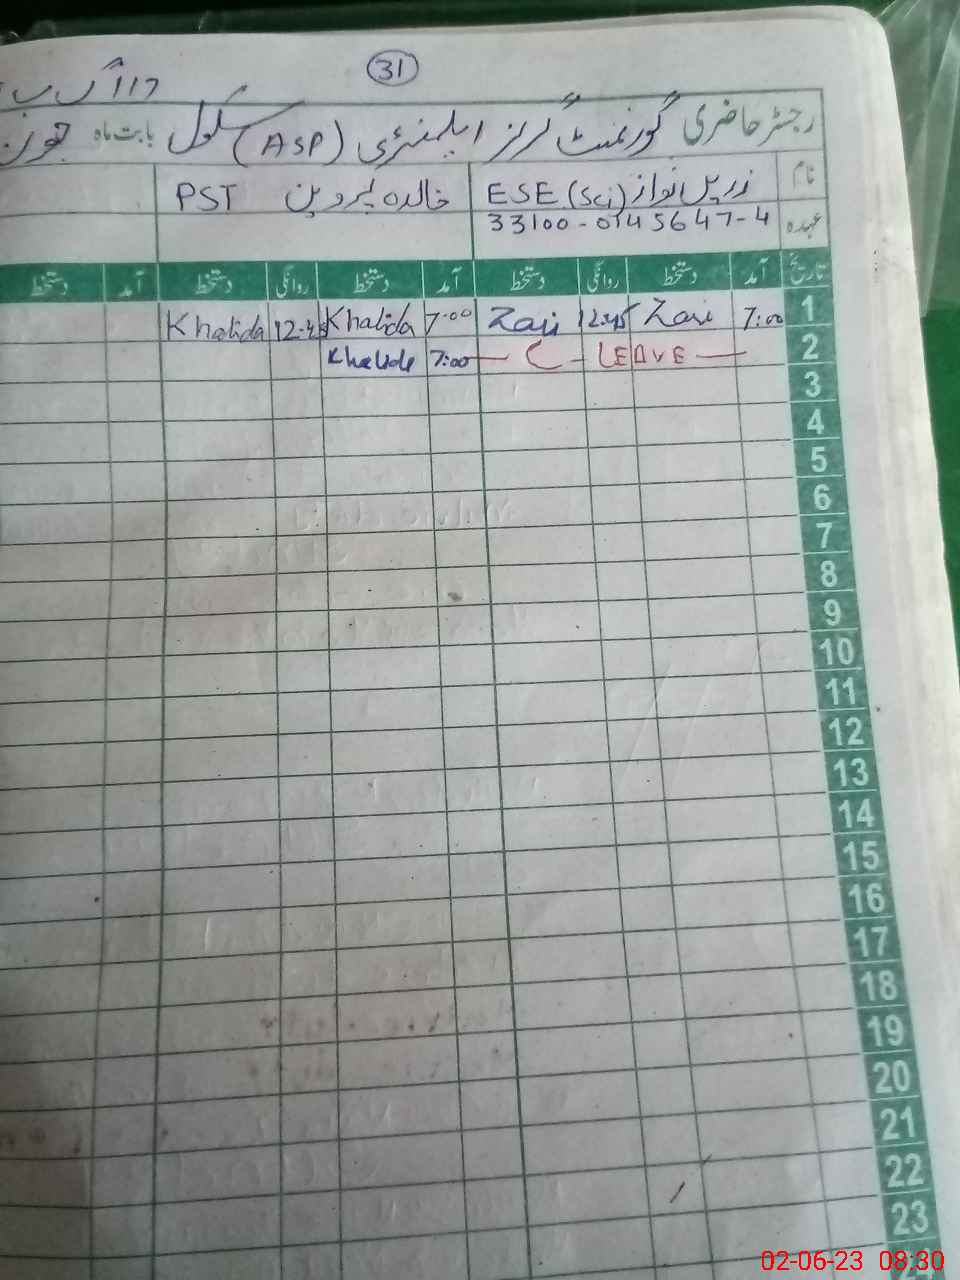 31
117 گ ب
رجسٹر حاضری گورنمنٹ گرلز ایلیمنٹری (ASP) سکول بابت ماہ جون
نام زریں نواز ESE (Sci) خالدہ پروین PST
عہدہ 33100-0145647-4
تاریخ آمد دستخط روانگی دستخط آمد دستخط روانگی دستخط آمد دستخط
1 7:00 Zari 12:45 Zari 7:00 Khalida 12:45 Khalida
2 C - LEAVE 7:00 Khalida
3
4
5
6
7
8
9
10
11
12
13
14
15
16
17
18
19
20
21
22
23
02-06-23 08:30